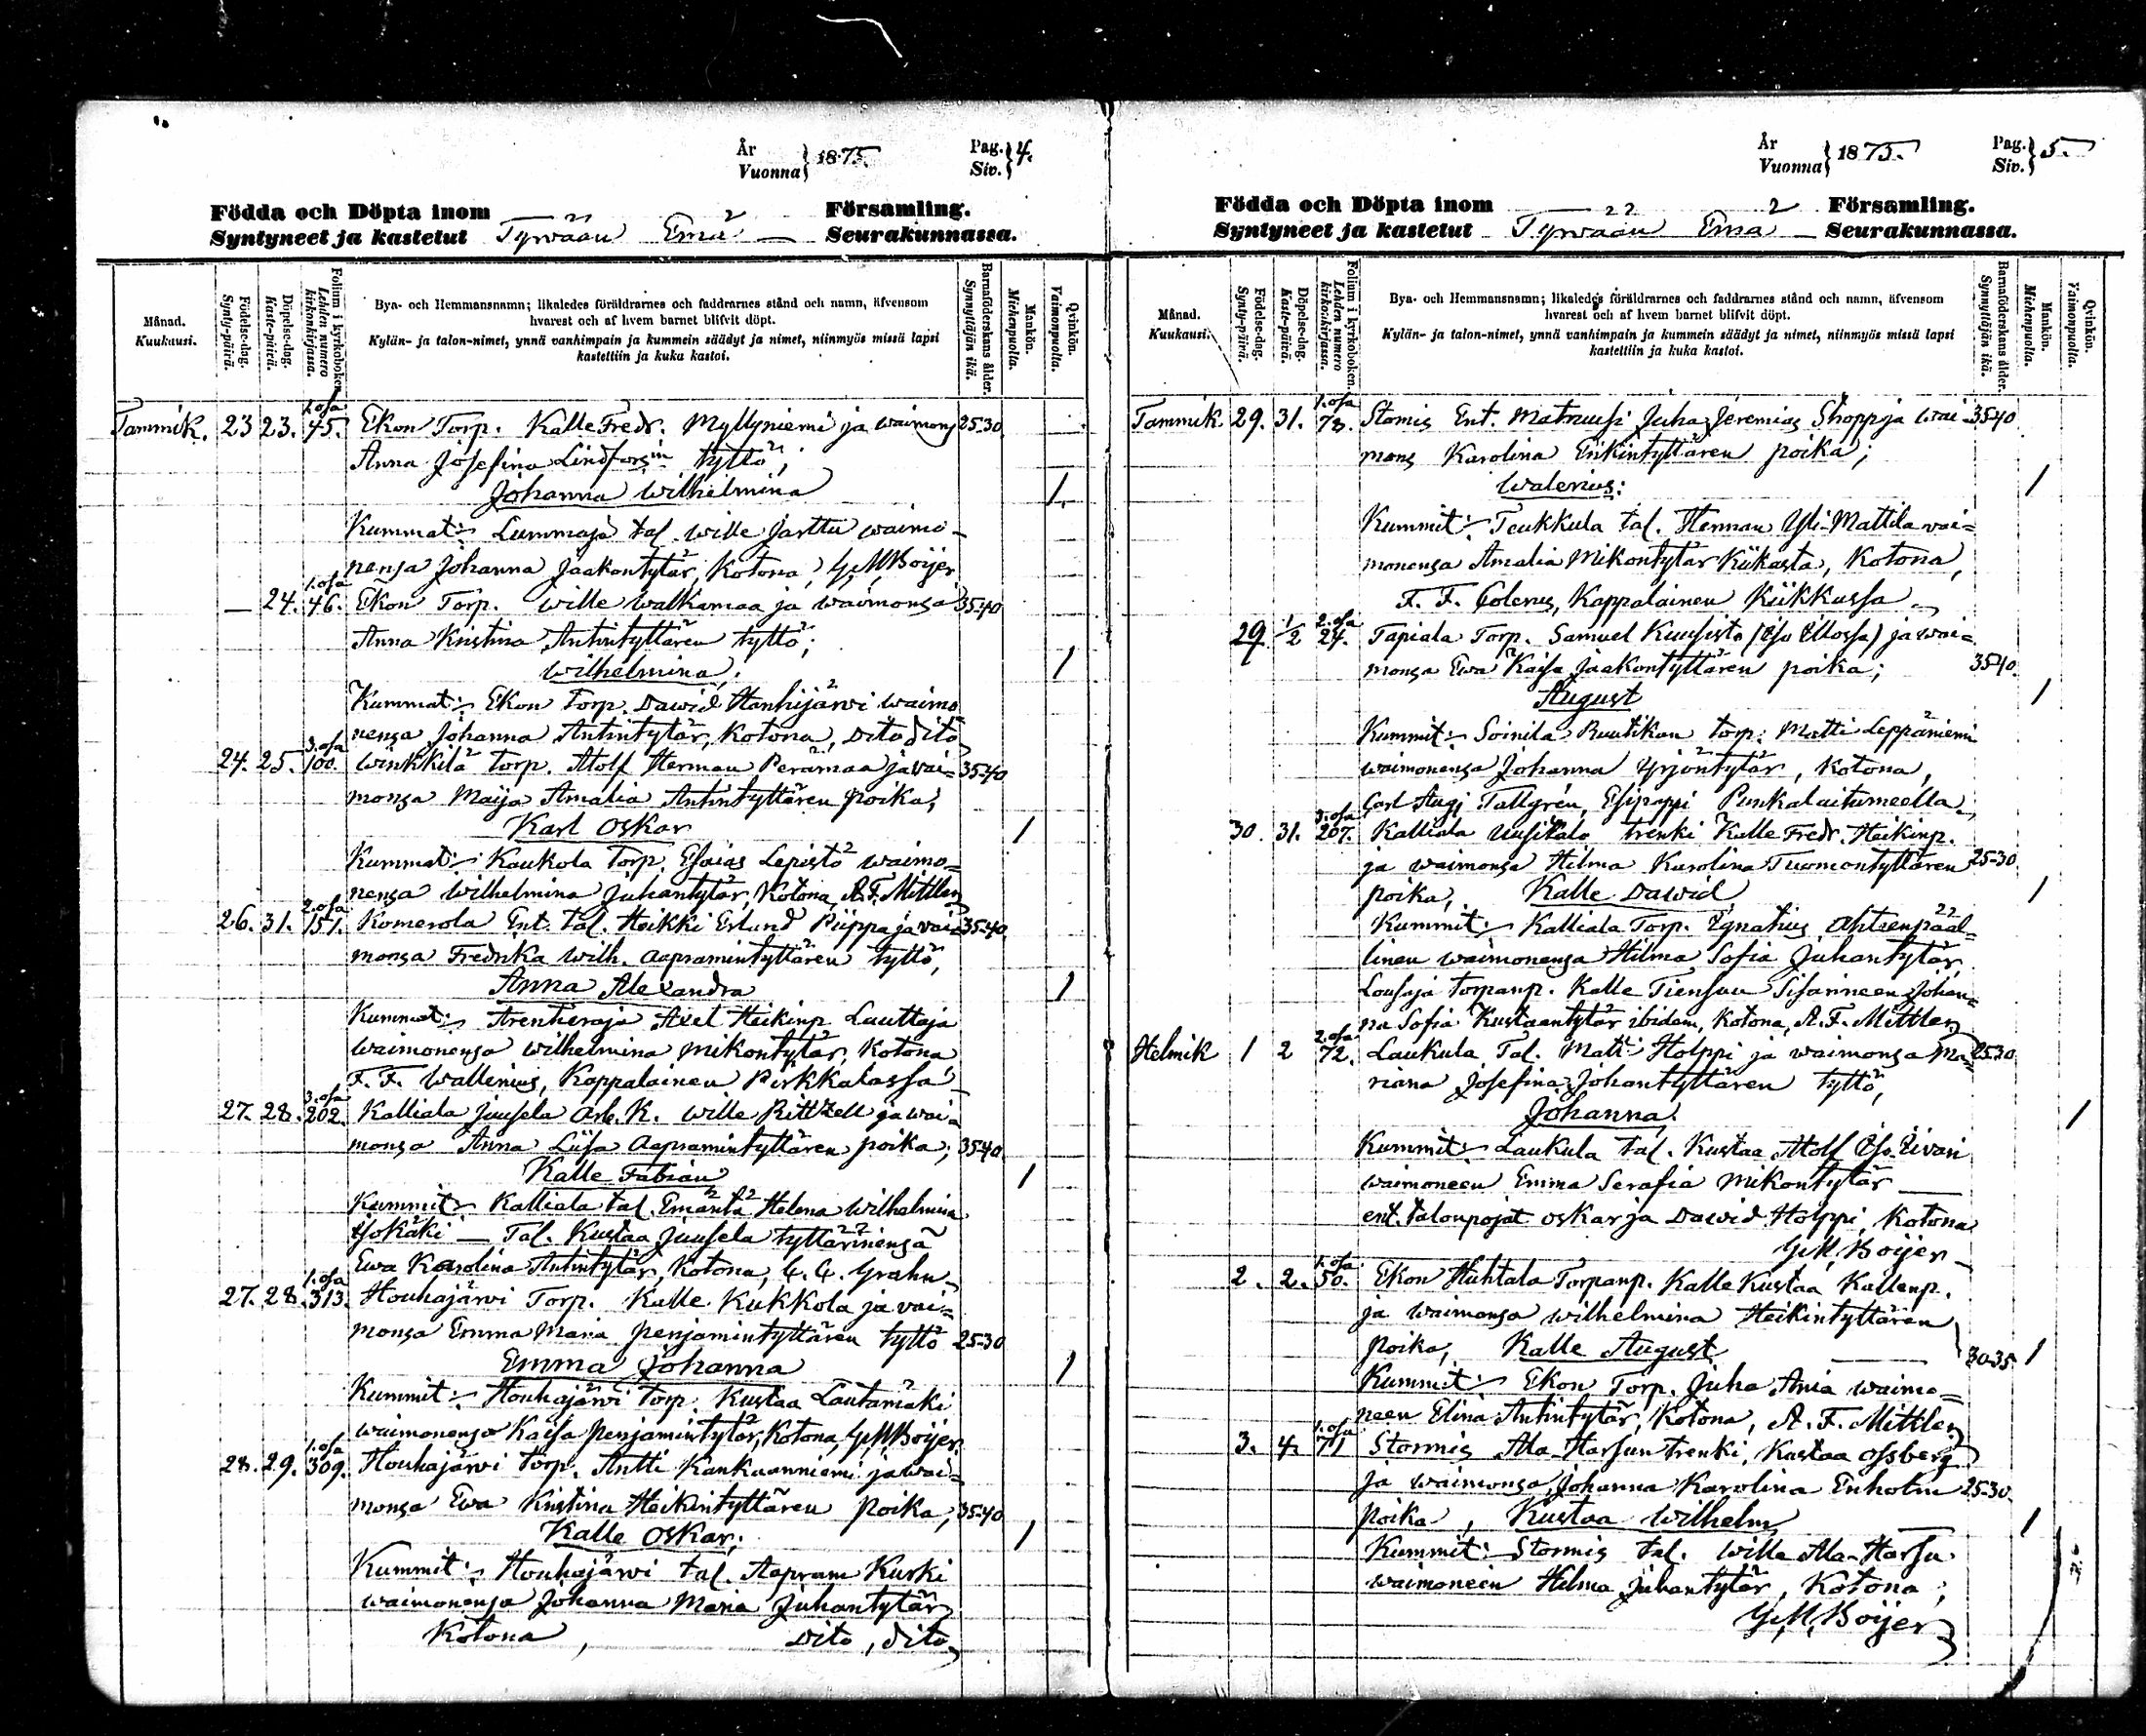 År
Vuonna } 1875.
Pag.
Siv. } 4.
Födda och Döpta inom Församling.
Syntyneet ja kastetut Tyrwään Emä — Seurakunnassa.
Månad.
Kuukausi.
Födelse-dag.
Synty-päivä.
Döpelse-dag.
Kaste-päivä.
Folium i kyrkoboken.
Lehden numero kirkonkirjassa.
Bya- och Hemmansnamn; likaledes föräldrarnes och faddrarnes stånd och namn, äfvensom
hvarest och af hvem barnet blifvit döpt.
Kylän- ja talon-nimet, ynnä vanhimpain ja kummein säädyt ja nimet, niinmyös missä lapsi
kastettiin ja kuka kastoi.
Barnaföderskans ålder.
Synnyttäjän ikä.
Mankön.
Miehenpuolta.
Qvinkön.
Vaimonpuolta.
Tammik. 23 23. 1.osa 45. Ekon Torp. Kalle Fredr. Myllyniemi ja waimons 25-30
Anna Josefina Lindforsin tyttö;
Johanna Wilhelmina 1
Kummat: Lummaja tal. Wille Jarttu waimo-
nensa Johanna Jaakontytär, Kotona, G.M. Boijer
— 24. 1.osa 46. Ekon Torp. Wille Walkamaa ja waimonsa 35-40
Anna Kristina Antintyttären tyttö;
Wilhelmina; 1
Kummat: Ekon Torp. Dawid Hanhijärwi waimo
nensa Johanna Antintytär, Kotona, Dito dito
24. 25. 3.osa 100. Winkkilä Torp. Atolf Herman Perämaa ja wai- 35-40
monsa Maija Amalia Antintyttären poika;
Karl Oskar 1
Kummat: Kaukola Torp. Esaias Lepistö waimo-
nensa Wilhelmina Juhantytär, Kotona, A.F. Mittler
26. 31. 2.osa 151. Komerola Ent. tal. Heikki Erlund Piippa ja wai- 35-40
monsa Fredrika Wilh. Aapramintyttären tyttö,
Anna Alexandra 1
Kummat: Arenteraja Axel Heikinp. Lauttaja
waimonensa Wilhelmina Mikontytär, Kotona
F. F. Wallenius, Kappalainen Pirkkalassa
27. 28. 3.osa 202. Kalliala Juusela Arb. K. Wille Rittzell ja wai-
monsa Anna Liisa Aapramintyttären poika; 35-40
Kalle Fabian 1
Kummit: Kalliala tal. Emäntä Helena Wilhelmina
— Tal. Kustaa Juusela tyttärinensä
Ewa Karolina Antintytär, Kotona, Grahn
27. 28. 1.osa 313. Houhajärwi Torp. Kalle Kukkola ja wai-
monsa Emma Maria Penjamintyttären tyttö 25-30
Emma Johanna 1
Kummit: Houhajärwi Torp. Kustaa Lautamäki
waimonensa Kaisa Penjamintytär, Kotona, G.M. Boijer.
28. 29. 1.osa 309. Houhajärwi Torp. Antti Kankaanniemi ja wai-
monsa Ewa Kristina Heikintyttären poika, 35-40
Kalle Oskar; 1
Kummit: Houhajärwi tal. Aapram Kurki
waimonensa Johanna Maria Juhantytär
Kotona, Dito, dito
År
Vuonna } 1875.
Pag.
Siv. } 5.
Födda och Döpta inom Församling.
Syntyneet ja kastetut Tyrwään Emä — Seurakunnassa.
Månad.
Kuukausi.
Födelse-dag.
Synty-päivä.
Döpelse-dag.
Kaste-päivä.
Folium i kyrkoboken.
Lehden numero kirkonkirjassa.
Bya- och Hemmansnamn; likaledes föräldrarnes och faddrarnes stånd och namn, äfvensom
hvarest och af hvem barnet blifvit döpt.
Kylän- ja talon-nimet, ynnä vanhimpain ja kummein säädyt ja nimet, niinmyös missä lapsi
kastettiin ja kuka kastoi.
Barnaföderskans ålder.
Synnyttäjän ikä.
Mankön.
Miehenpuolta.
Qvinkön.
Vaimonpuolta.
Tammik 29. 31. 1.osa 78. Stomis Ent. Matruusi Juha Jeremias Shopp ja wai- 35-40
mons Karolina Erikintyttären poika;
Walerius: 1
Kummit: Teukkula tal. Herman Yli-Mattila wai-
monensa Amalia Mikontytär Kiikasta, Kotona,
F. F. Kappalainen Kiikkassa
29 1/2 2.osa 24. Tapiala Torp. Samuel Kuusisto (Iso Illossa) ja wai-
monsa Ewa Kaisa Jaakontyttären poika; 35-40.
August 1
Kummit: Soinila Ruutikan torp. Matti Leppäniemi
waimonensa Johanna Yrjöntytär, Kotona,
Carl Aug. Tallgrén, Esipappi Punkalaitumeella
30. 31. 3.osa 207. Kalliala Uusitalo trenki Kalle Fredr. Heikinp.
ja waimonsa Hilma Karolina Tuomontyttären 25-30
poika, Kalle Dawid 1
Kummit: Kalliala Torp. Ignatius Ahteenpääl-
linen waimonensa Hilma Sofia Juhantytär
Lousaja torpanp. Kalle Tiensuu Sisarineen Johan-
na Sofia Kustaantytär ibidem, Kotona, A.F. Mittler
Helmik 1 2 2.osa 72. Laukula Tal. Matti Holppi ja waimonsa Ma- 25-30
riana Josefina Johantyttären tyttö,
Johanna, 1
Kummit: Laukula tal. Kustaa Atolf Iso-Iivari
waimoneen Emma Serafia Mikontytär —
ent. talonpojat Oskar ja Dawid Holppi, Kotona
G.M. Boijer
2. 2. 1.osa 50. Ekon Huhtala Torpanp. Kalle Kustaa Kallenp.
ja waimonsa Wilhelmina Heikintyttären
poika, Kalle August 30-35. 1
Kummit: Ekon Torp. Juha Ania waimo-
neen Elina Antintytär, Kotona, A. F. Mittler
3. 4. 1.osa 71 Stormis Ala-Harsun trenki, Kustaa Ossberg
ja waimonsa, Johanna Karolina Enholm 25-30.
poika, Kustaa Wilhelm 1
Kummit: Stormis tal. Wille Ala-Harsu
waimoneen Hilma Juhantytär, Kotona;
G.M. Boijer